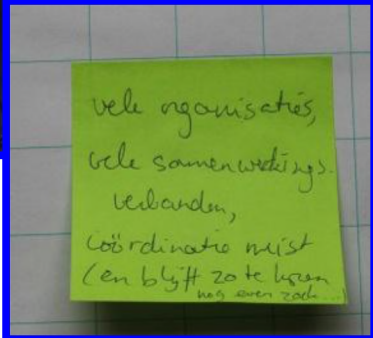 vele organisaties,
vele samenwerkings-
verbanden,
coördinatie mist
(en blijft zo te horen
nog even zoek...)